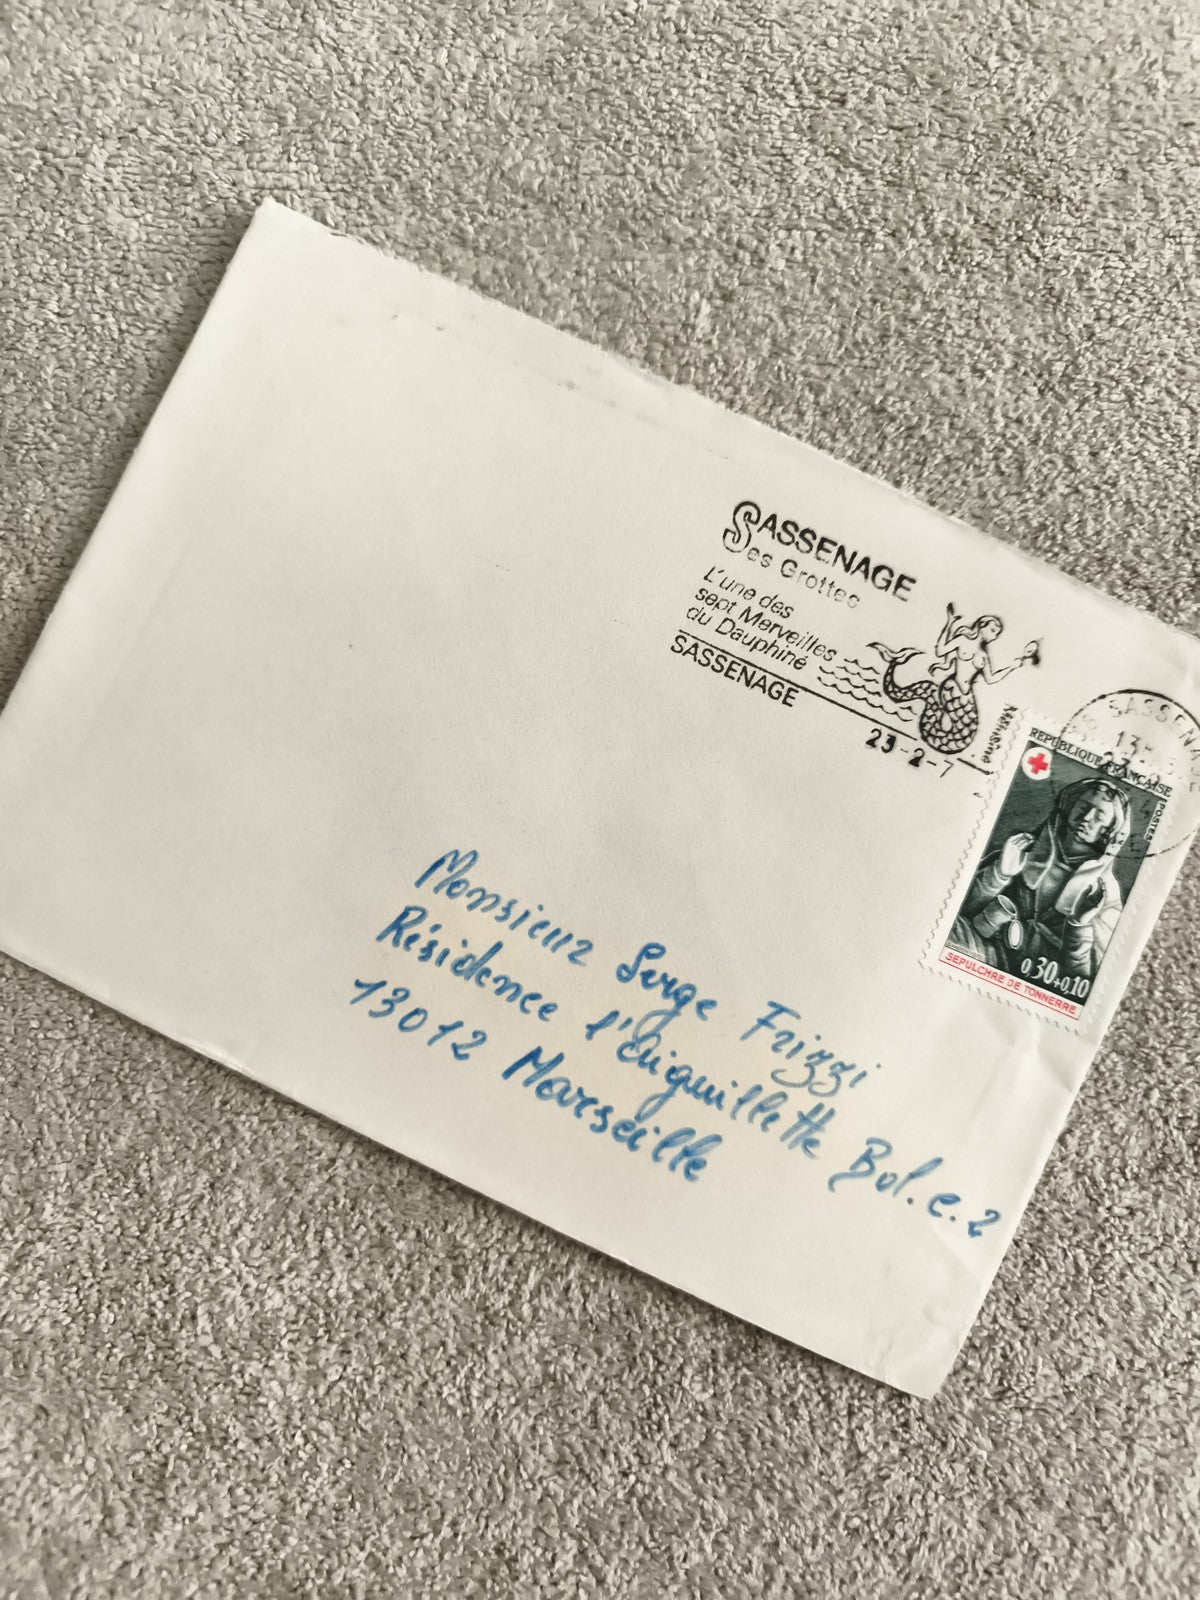 SASSENAGE
Ses Grottes
L'une des
sept Merveilles
du Dauphiné
SASSENAGE
23-2-7
Mélusine
SASSENA
13H
23
REPUBLIQUE FRANÇAISE
POSTES
0,30+0,10
SEPULCHRE DE TONNERRE
Monsieur Serge Frizzi
Résidence l'Aiguillette Bat. e. 2
13012 Marseille